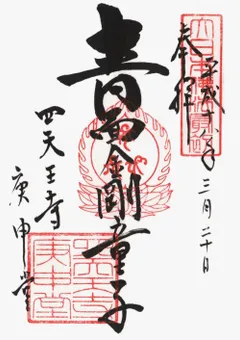 奉拝
平成十八年三月二十日
青面金剛童子
四天王寺
庚申堂
四天王寺
庚申堂